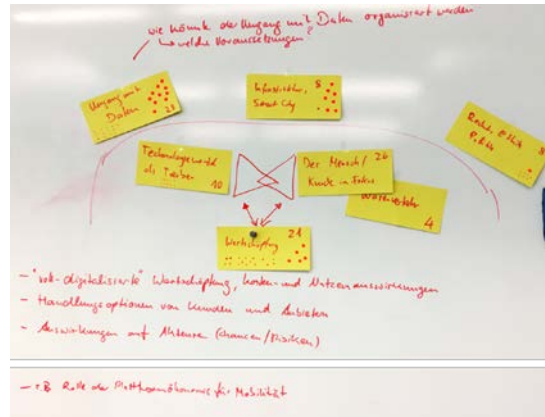 wie könnte der Umgang mit Daten organisiert werden
↳ welche Voraussetzungen?
Umgang mit
Daten
23
Infrastruktur,
Smart City
8
Recht, Ethik
Politik
8
Technologiewandel
als Treiber
10
Der Mensch /
Kunde im Fokus
26
Warenverkehr
4
Wertschöpfung
21
- "voll-digitalisierte" Wertschöpfung, Kosten- und Nutzenauswirkungen
- Handlungsoptionen von Kunden und Anbietern
- Auswirkungen auf Akteure (Chancen / Risiken)
- z.B. Rolle der Plattformökonomie für Mobilität